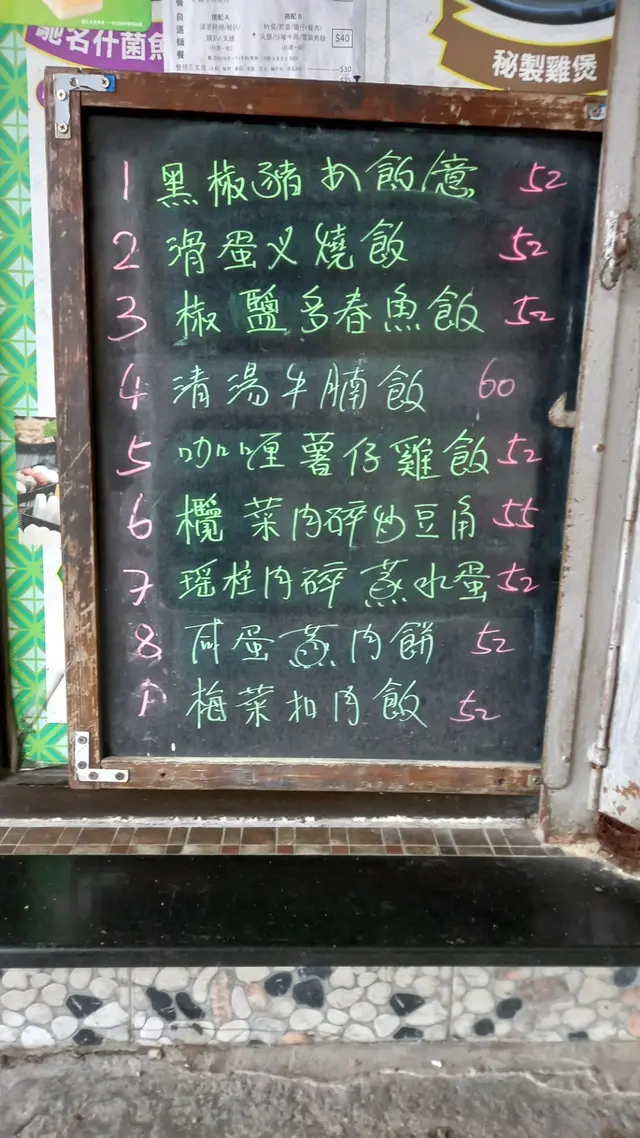 馳名什菌魚
餐自選麵餐
搭配A
搭配B
$40
$30
秘製雞煲
1 黑椒豬扒飯/意 52
2 滑蛋叉燒飯 52
3 椒鹽多春魚飯 52
4 清湯牛腩飯 60
5 咖喱薯仔雞飯 52
6 欖菜肉碎炒豆角 55
7 瑶柱肉碎蒸水蛋 52
8 咸蛋蒸肉餅 52
9 梅菜扣肉飯 52